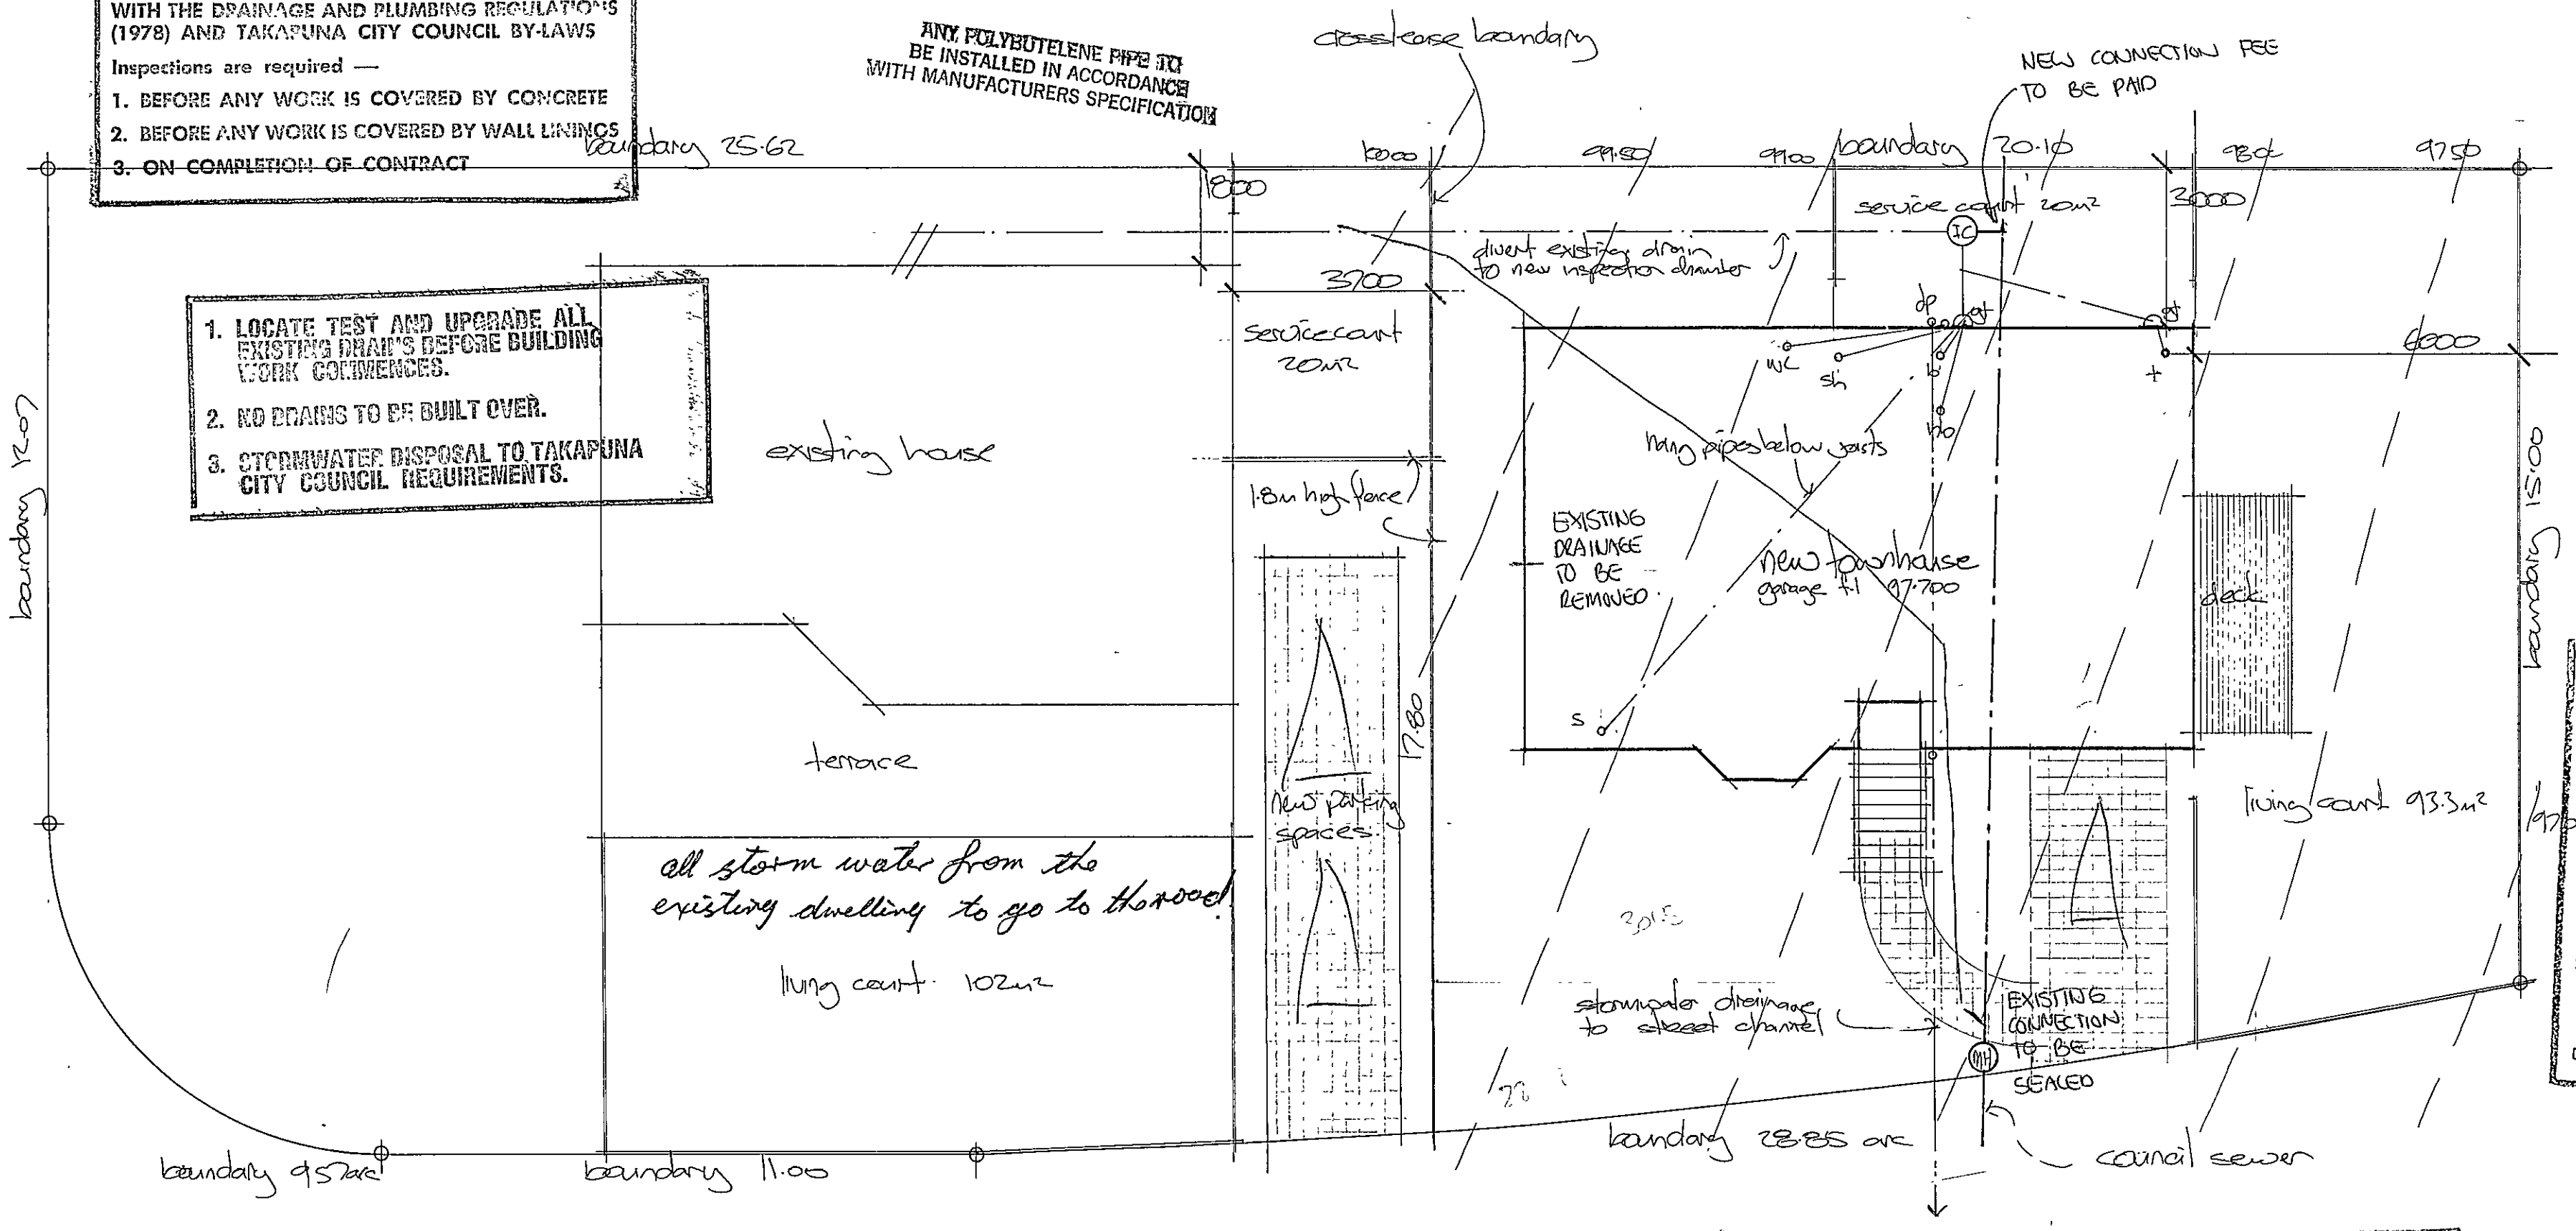 WITH THE DRAINAGE AND PLUMBING REGULATIONS
(1978) AND TAKAPUNA CITY COUNCIL BY-LAWS
Inspections are required —
1. BEFORE ANY WORK IS COVERED BY CONCRETE
2. BEFORE ANY WORK IS COVERED BY WALL LININGS
3. ON COMPLETION OF CONTRACT
ANY POLYBUTELENE PIPE TO
BE INSTALLED IN ACCORDANCE
WITH MANUFACTURERS SPECIFICATION
crosslease boundary
NEW CONNECTION FEE
TO BE PAID
boundary 25.62
99.50
99.00
boundary 20.10
97.50
1800
service court 20m²
3000
IC
divert existing drain
to new inspection chamber
3700
1. LOCATE TEST AND UPGRADE ALL
EXISTING DRAINS BEFORE BUILDING
WORK COMMENCES.
2. NO DRAINS TO BE BUILT OVER.
3. STORMWATER DISPOSAL TO TAKAPUNA
CITY COUNCIL REQUIREMENTS.
service court
20m²
dp
gt
gt
6000
wc
sh
b
t
boundary 12.07
existing house
hang pipes below joists
1.8m high fence
EXISTING
DRAINAGE
TO BE
REMOVED.
new townhouse
garage f.l 97.700
deck
boundary 15.00
s
17.80
terrace
new parking
spaces
living court 93.3m²
all storm water from the
existing dwelling to go to the road
living court. 102m²
stormwater drainage
to street channel
EXISTING
CONNECTION
TO BE
SEALED
MH
boundary 9.57arc
boundary 11.00
boundary 28.85 arc
council sewer